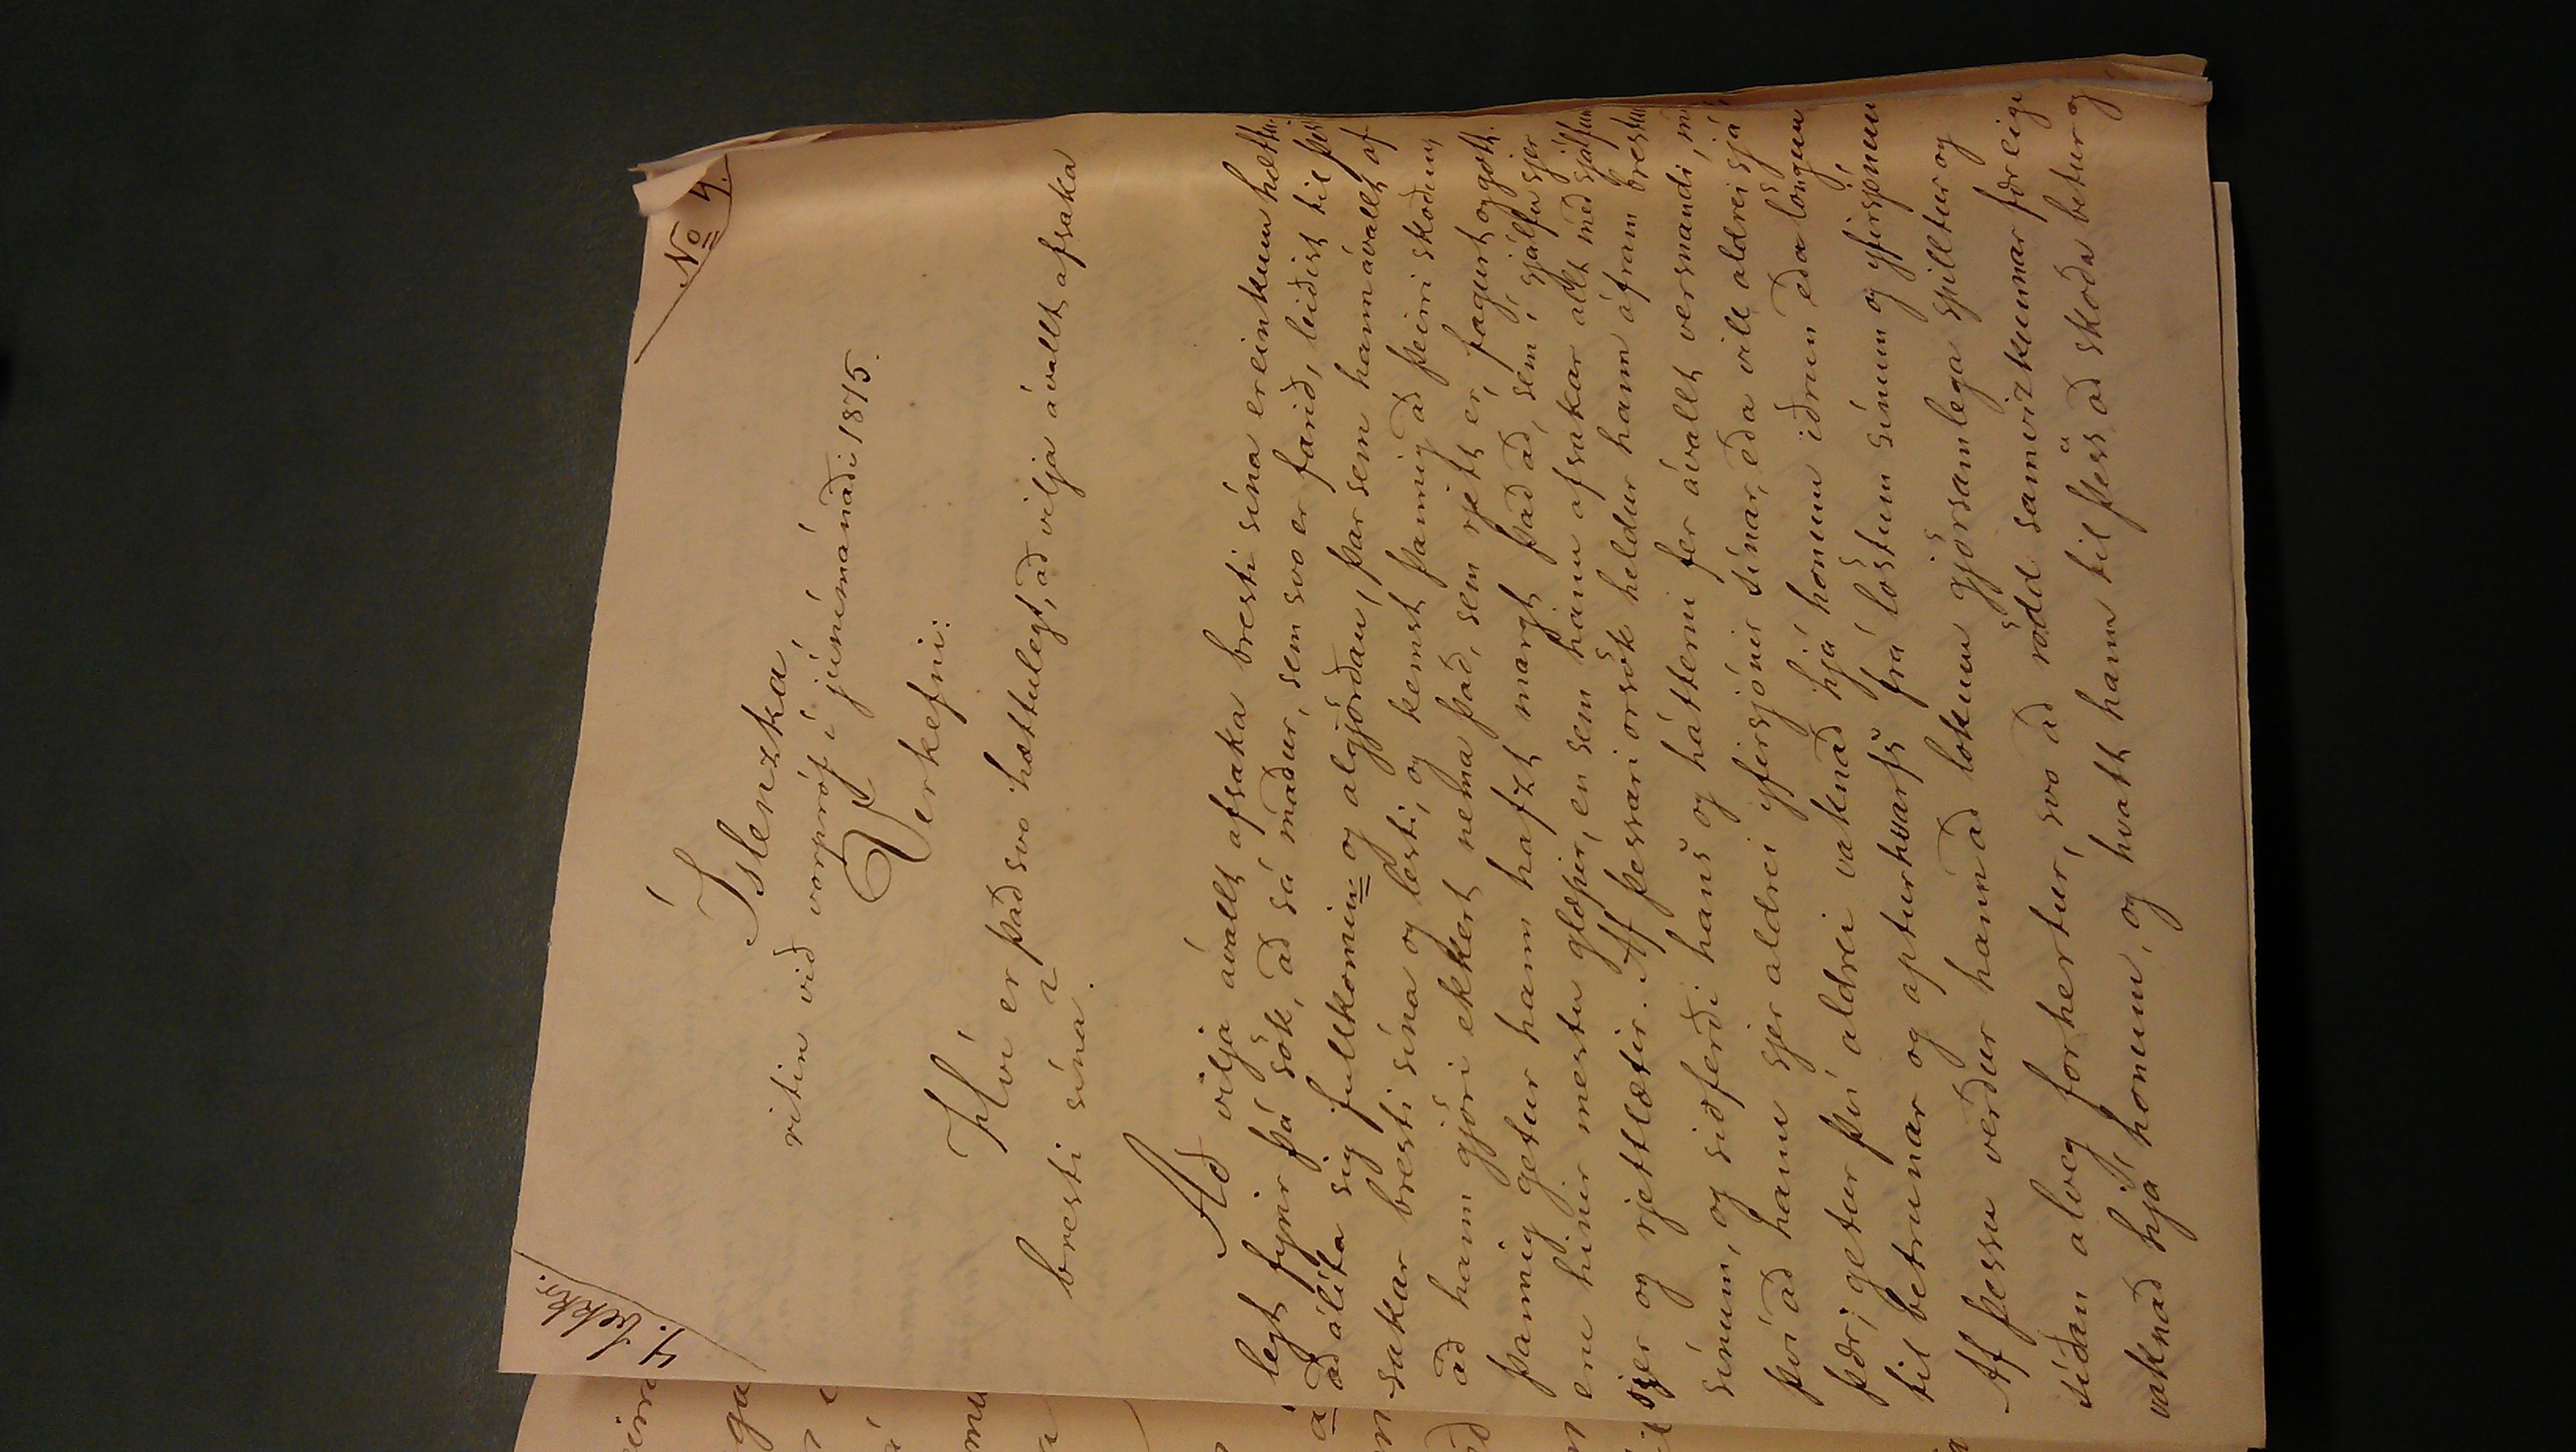 4. bekkr.
No 4.
Íslenzka,
ritin við vorpróf í júnímánaði 1875.
Verkefni:
Hví er það svo hættulegt, að vilja ávallt afsaka
bresti sína?
Að vilja ávallt afsaka bresti sína er einkum hættu-
legt fyrir þá sök, að sá maður, sem svo er farið, leiðist til þess
að álíta sig fullkominn og algjörðan, þar sem hann ávallt af
sakar bresti sína og lesti, og kemst þannig að þeirri skoðun,
að hann gjöri ekkert nema það, sem rjett er, fagurt og gott.
Þannig getur hann hafzt margt það að, sem í sjálfu sjer
eru hinir mestu glæpir, en sem hann afsakar allt með sjálfum
sjer og rjettlætir. Af þessari orsök heldur hann áfram brestum
sínum, og siðferði hans og hátterni fer ávallt versnandi,
því að hann sjer aldrei yfirsjónir sínar, eða vill aldrei sjá
þær; getur því aldrei vaknað hjá honum iðrun eða löngun
til betrunar og apturhvarfs frá löstum sínum og yfirsjónum
Af þessu verður hann að lokum gjörsamlega spilltur og
síðan alveg forhertur, svo að rödd samvizkunnar fær eigi
vaknað hjá honum, og hvatt hann til þess að skoða betur og